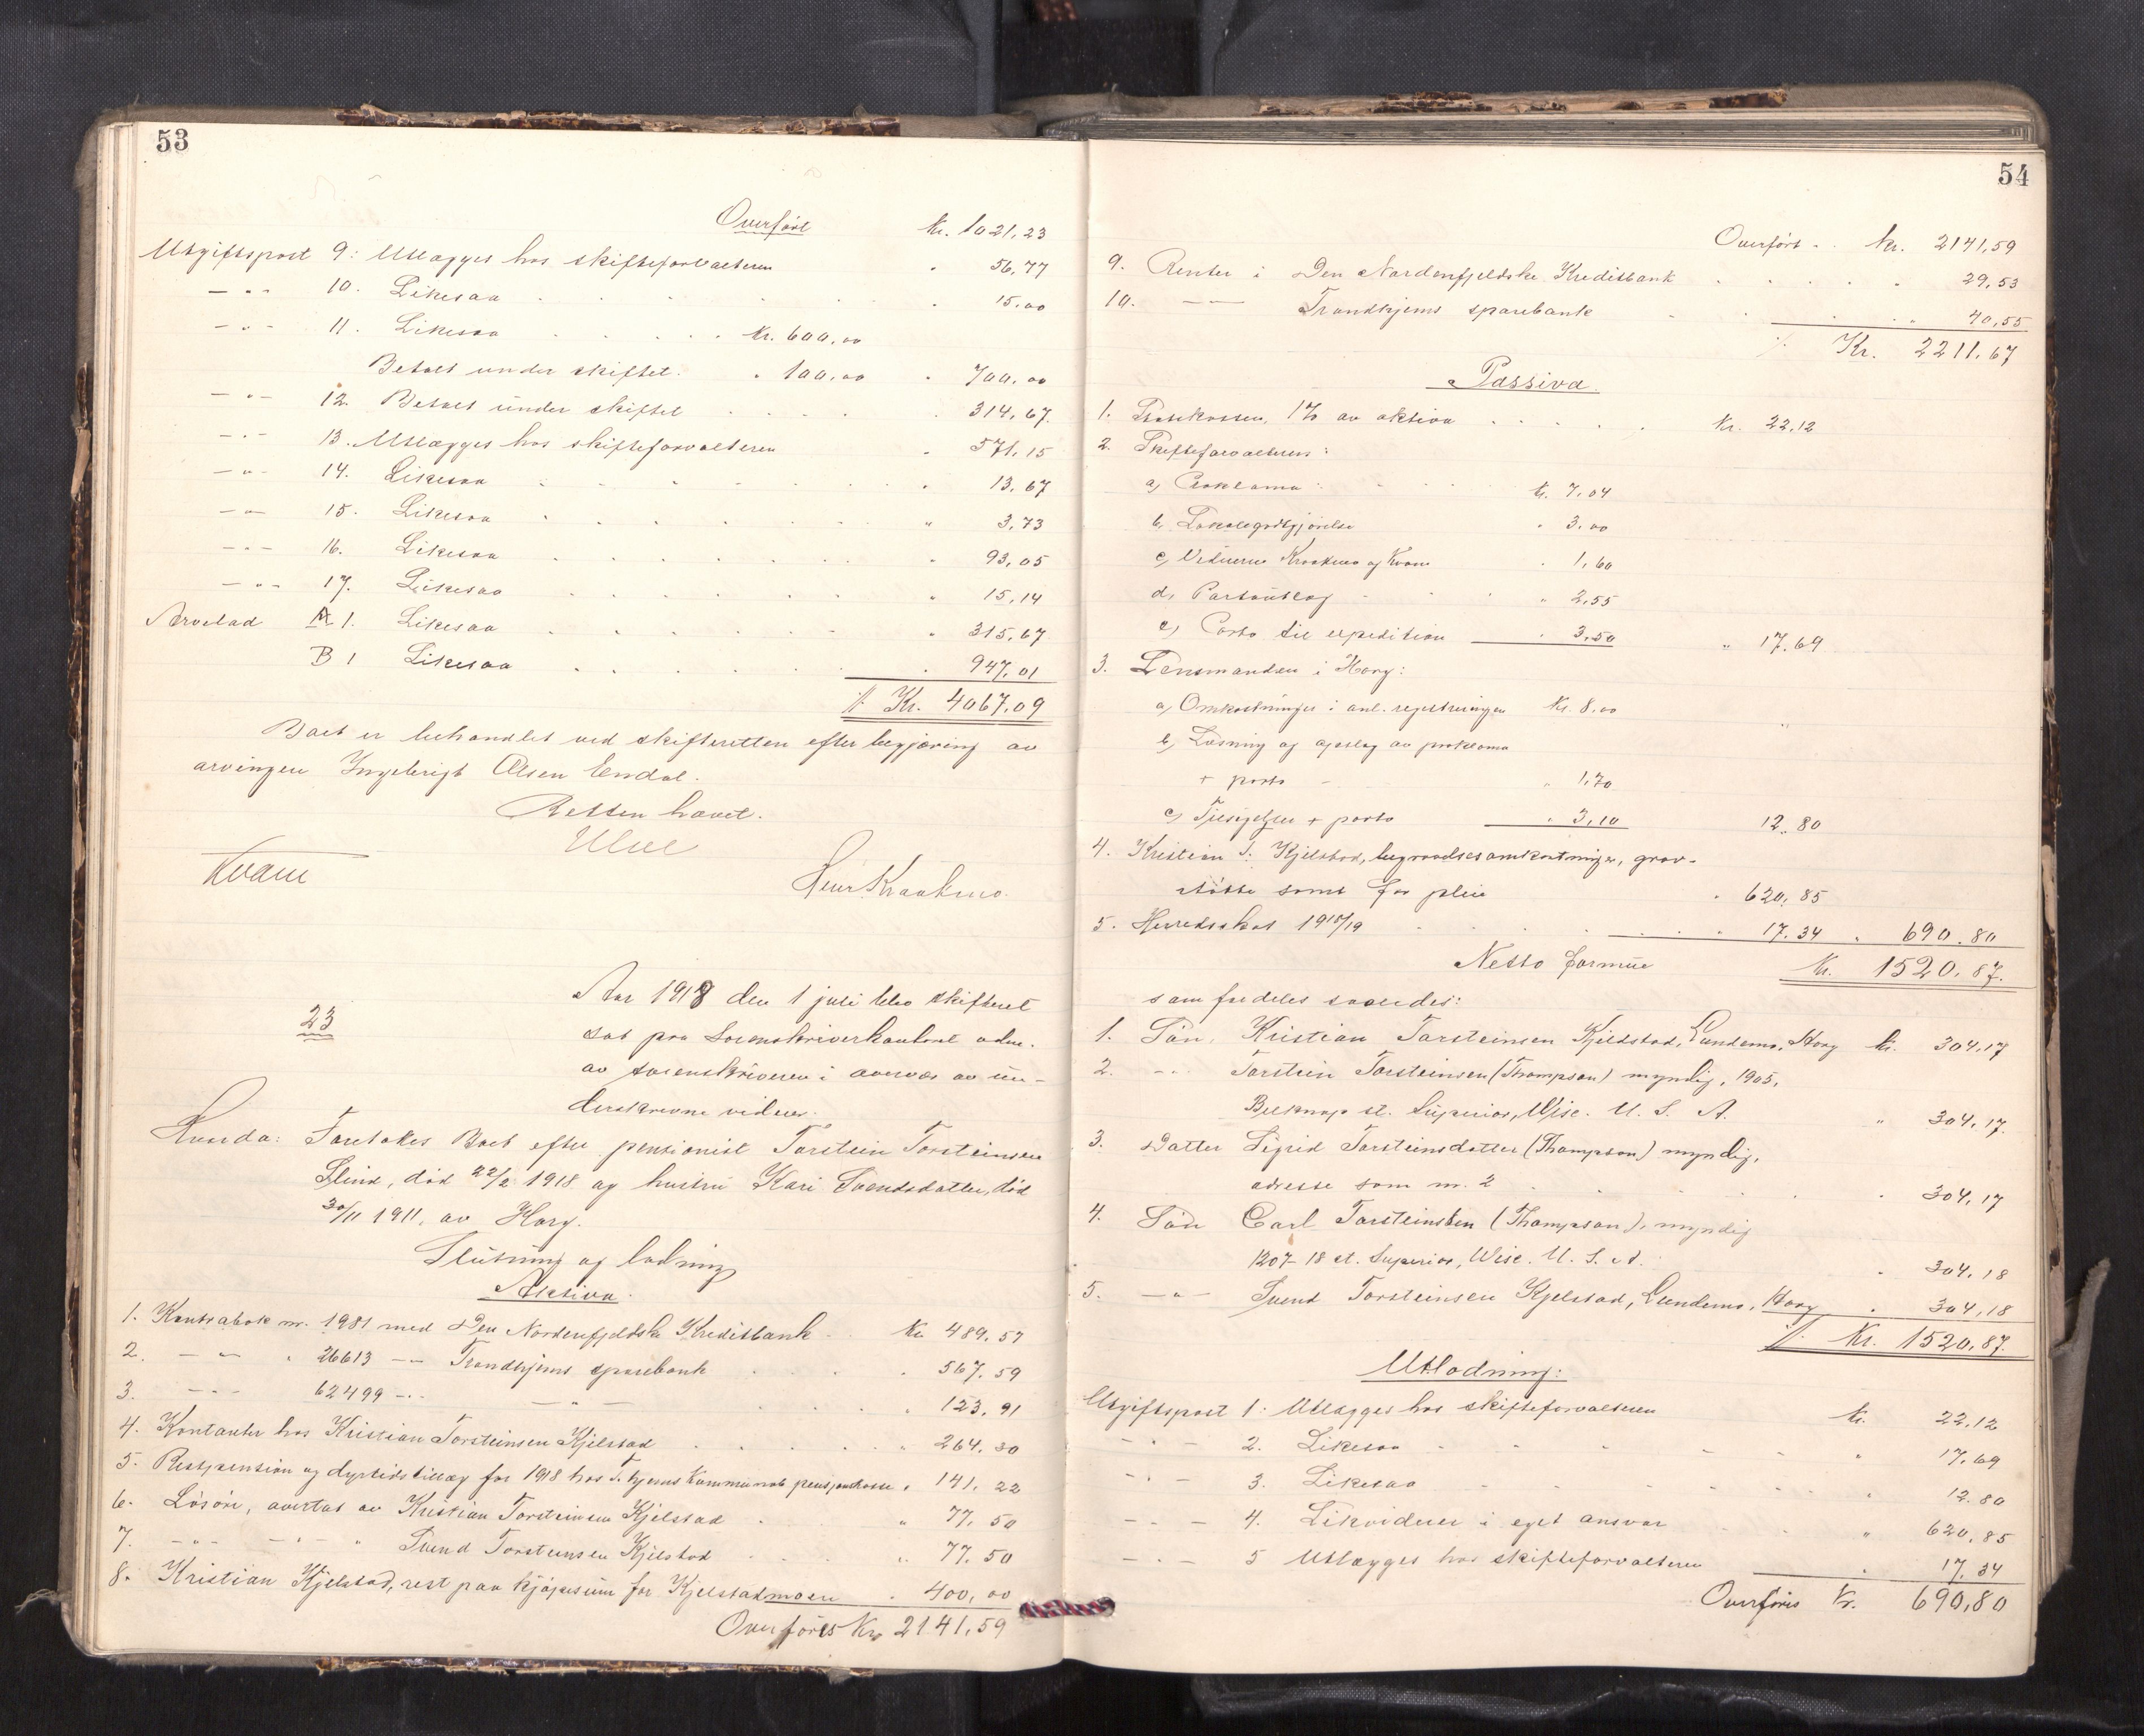 53
Overført Kr. 1021,23
Utgiftspost 9: Utlægges hos skifteforvalteren " 56,77
—"— 10. Likesaa " 15,00
—"— 11. Likesaa Kr. 600,00
Betalt under skiftet. " 100,00 " 700,00
—"— 12. Betalt under skiftet " 314,67.
—"— 13. Utlægges hos skifteforvalteren " 571,15
—"— 14. Likesaa " 13,67
—"— 15. Likesaa " 3,73
—"— 16. Likesaa " 93,05
—"— 17. Likesaa " 15,14
Arvelod A 1. Likesaa " 315,67
B 1 Likesaa " 947,01
./. Kr. 4067,09
Boet er behandlet ved skifteretten efter begjæring av
arvingen Ingebrigt Olsen Endal.
Retten hævet.
Kvam
Einar Kraakmo.
23
Aar 1918 den 1 juli blev skifteret
sat paa Sorenskriverkontoret adm.
av sorenskriveren i overvær av un-
derskrevne vidner.
Hvorda: Foretokes Boet efter pensionist Torstein Torsteinsen
Slind, død 22/2 1918 og hustru Kari Svendsdatter, død
30/11 1911, av Horg.
Slutning og lodning
Aktiva.
1. Kontrabok nr. 1981 med Den Nordenfjeldske Kreditbank Kr. 489.57
2. —"— " 26613 —"— Trondhjems sparebank " 567.59
3. —"— 62499 —"— —"— " 123.91
4. Kontanter hos Kristian Torsteinsen Kjelstad " 264.30
5. Restpension og dyrtidstillæg for 1918 hos T.hjems Kommunale pensjonskasse " 141.22
6. Løsøre, overtat av Kristian Torsteinsen Kjelstad " 77.50
7. —"— —"— " Svend Torsteinsen Kjelstad " 77.50
8. Kristian Kjelstad, rest paa kjøpesum for Kjelstadmoen " 400,00
Overføres Kr. 2141,59
54
Overført Kr. 2141,59
9. Renter i Den Nordenfjeldske Kreditbank " 29,53
10. —"— Trondhjems sparebank " 40,55
./. Kr. 2211,67
Passiva.
1. Statskassen, 1% av aktiva Kr. 22,12
2. Skifteforvalteren:
a) Proklama: Kr. 7,04
b) Lokalegodtgjørelse " 3,00
c) Vidnerne Kraakmo og Kvam " 1,60
d) Portoutlæg " 2,55
e) Porto til expedition " 3,50 " 17,69
3. Lensmanden i Horg:
a) Omkostninger i anl. registreringen Kr. 8,00
b) Læsning og opslag av proklama
+ porto " 1,70
c) Tilsigelser + porto " 3,10 12,80
4. Kristian T. Kjelstad, begravelsesomkostninger, grav-
støtte samt for pleie " 620,85
5. Herredsskat 1918/19 " 17.34 " 690.80
Netto formue Kr. 1520,87.
som fordeles saaledes:
1. Søn, Kristian Torsteinsen Kjeldstad, Lundemo, Horg Kr. 304,17
2. —"— Torstein Torsteinsen (Thompson) myndig, 1905,
Belknap st. Superior, Wisc. U. S. A. " 304,17.
3. Datter Sigrid Torsteinsdatter (Thompson) myndig,
adresse som nr. 2 " 304,17
4. Søn Carl Torsteinsen (Thompson), myndig
1207-18 st. Superior, Wisc. U. S. A. " 304,18
5. —"— Svend Torsteinsen Kjelstad, Lundemo, Horg " 304,18
./. Kr. 1520,87.
Utlodning:
Utgiftspost 1: Utlægges hos skifteforvalteren Kr. 22,12
—"— 2. Likesaa " 17,69
—"— 3. Likesaa " 12.80
—"— 4. Likviderer i eget ansvar " 620,85
—"— 5 Utlægges hos skifteforvalteren " 17,34
Overføres Kr. 690,80